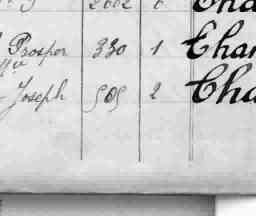 2662 6 Cha
Prosper 330 1 Char
Joseph 505 2 Cha